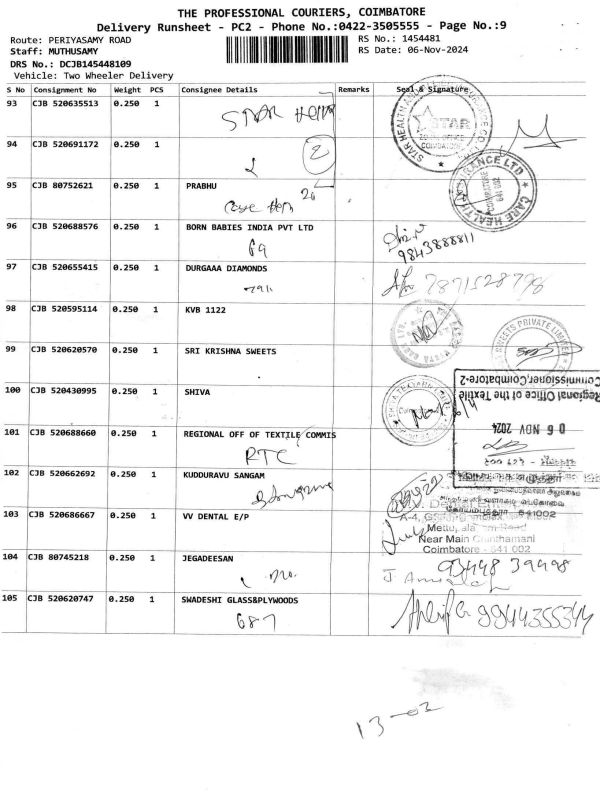 THE PROFESSIONAL COURIERS, COIMBATORE
Delivery Runsheet - PC2 - Phone No.:0422-3505555 - Page No.:9
Route: PERIYASAMY ROAD
RS No.: 1454481
Staff: MUTHUSAMY
RS Date: 06-Nov-2024
DRS No.: DCJB145448109
Vehicle: Two Wheeler Delivery
S No Consignment No Weight PCS Consignee Details Remarks Seal & Signature
93 CJB 520635513 0.250 1
STAR Health
STAR HEALTH AND
STAR
ZONAL OFFICE
COIMBATORE
94 CJB 520691172 0.250 1
2
95 CJB 80752621 0.250 1 PRABHU
Care 20
CARE HEALTH INSURANCE LTD
COIMBATORE
641 002
96 CJB 520688576 0.250 1 BORN BABIES INDIA PVT LTD
69
9843888811
97 CJB 520655415 0.250 1 DURGAAA DIAMONDS
7871528798
98 CJB 520595114 0.250 1 KVB 1122
99 CJB 520620570 0.250 1 SRI KRISHNA SWEETS
SWEETS PRIVATE LIMITED
100 CJB 520430995 0.250 1 SHIVA
Regional Office of the Textile
Commissioner,Coimbatore-2
06 NOV 2024
101 CJB 520688660 0.250 1 REGIONAL OFF OF TEXTILE COMMIS
RTC
102 CJB 520662692 0.250 1 KUDDURAVU SANGAM
641002
103 CJB 520686667 0.250 1 VV DENTAL E/P
Near Main
Coimbatore - 641 002
104 CJB 80745218 0.250 1 JEGADEESAN
93448 39498
105 CJB 520620747 0.250 1 SWADESHI GLASS&PLYWOODS
687
9944355344
13-02